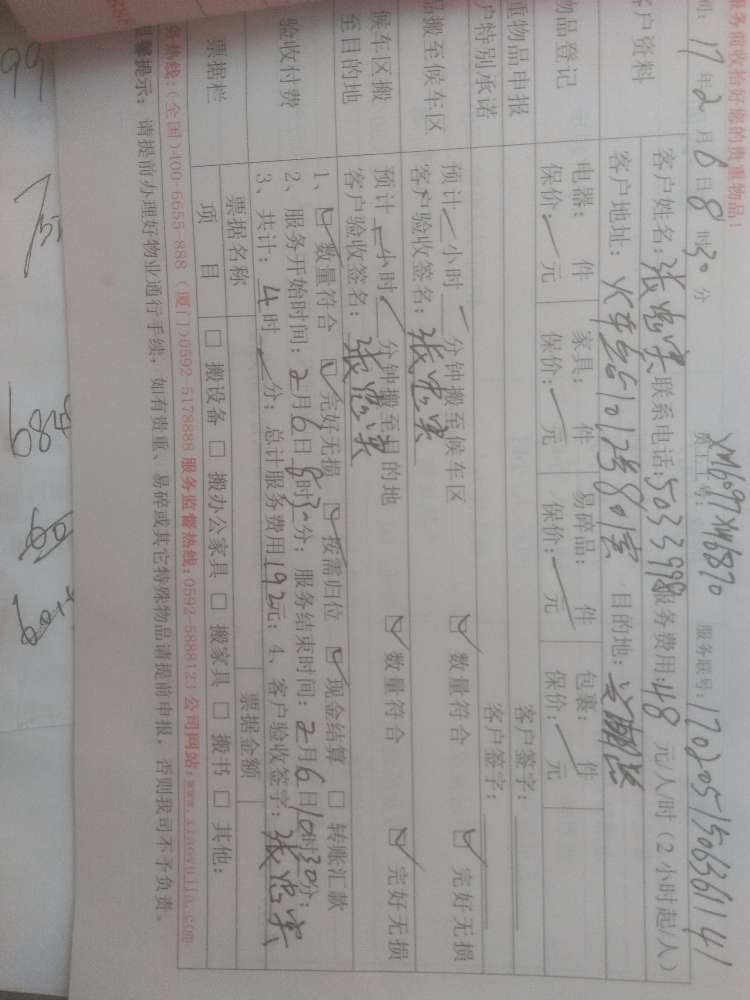 服务前收拾好您的贵重物品!
17年2月6日8时30分 员工工号:XM6097XM6870 服务账号:1702051506361141
客户资料
客户姓名:张忠实 联系电话:5033998 服务费用:48元/人/时(2小时起/人)
客户地址: 目的地:
物品登记
电器: 件 家具: 件 易碎品: 件 包裹: 件
保价: 元 保价: 元 保价: 元 保价: 元
重物品申报
客户签字:
户特别承诺
客户签字:
品搬至候车区
预计 小时 分钟搬至候车区 数量符合 完好无损
客户验收签名:张忠实
候车区搬至目的地
预计 小时 分钟搬至目的地 数量符合 完好无损
客户验收签名:张忠实
验收付费
1、数量符合 完好无损 按需归位 现金结算 转账汇款
2、服务开始时间:2月6日8时30分;服务结束时间:2月6日10时30分;
3、共计:4时 分;总计服务费用192元;4、客户验收签字:张忠实
票据栏
票据名称 票据金额
项目 搬设备 搬办公家具 搬家具 搬书 其他:
务热线:(全国)400-6655-888 (厦门)0592-5178888 服务监督热线:0592-5888123 公司网站:
温馨提示:请提前办理好物业通行手续,如有贵重、易碎或其它特殊物品请提前申报,否则我司不予负责。
99
684